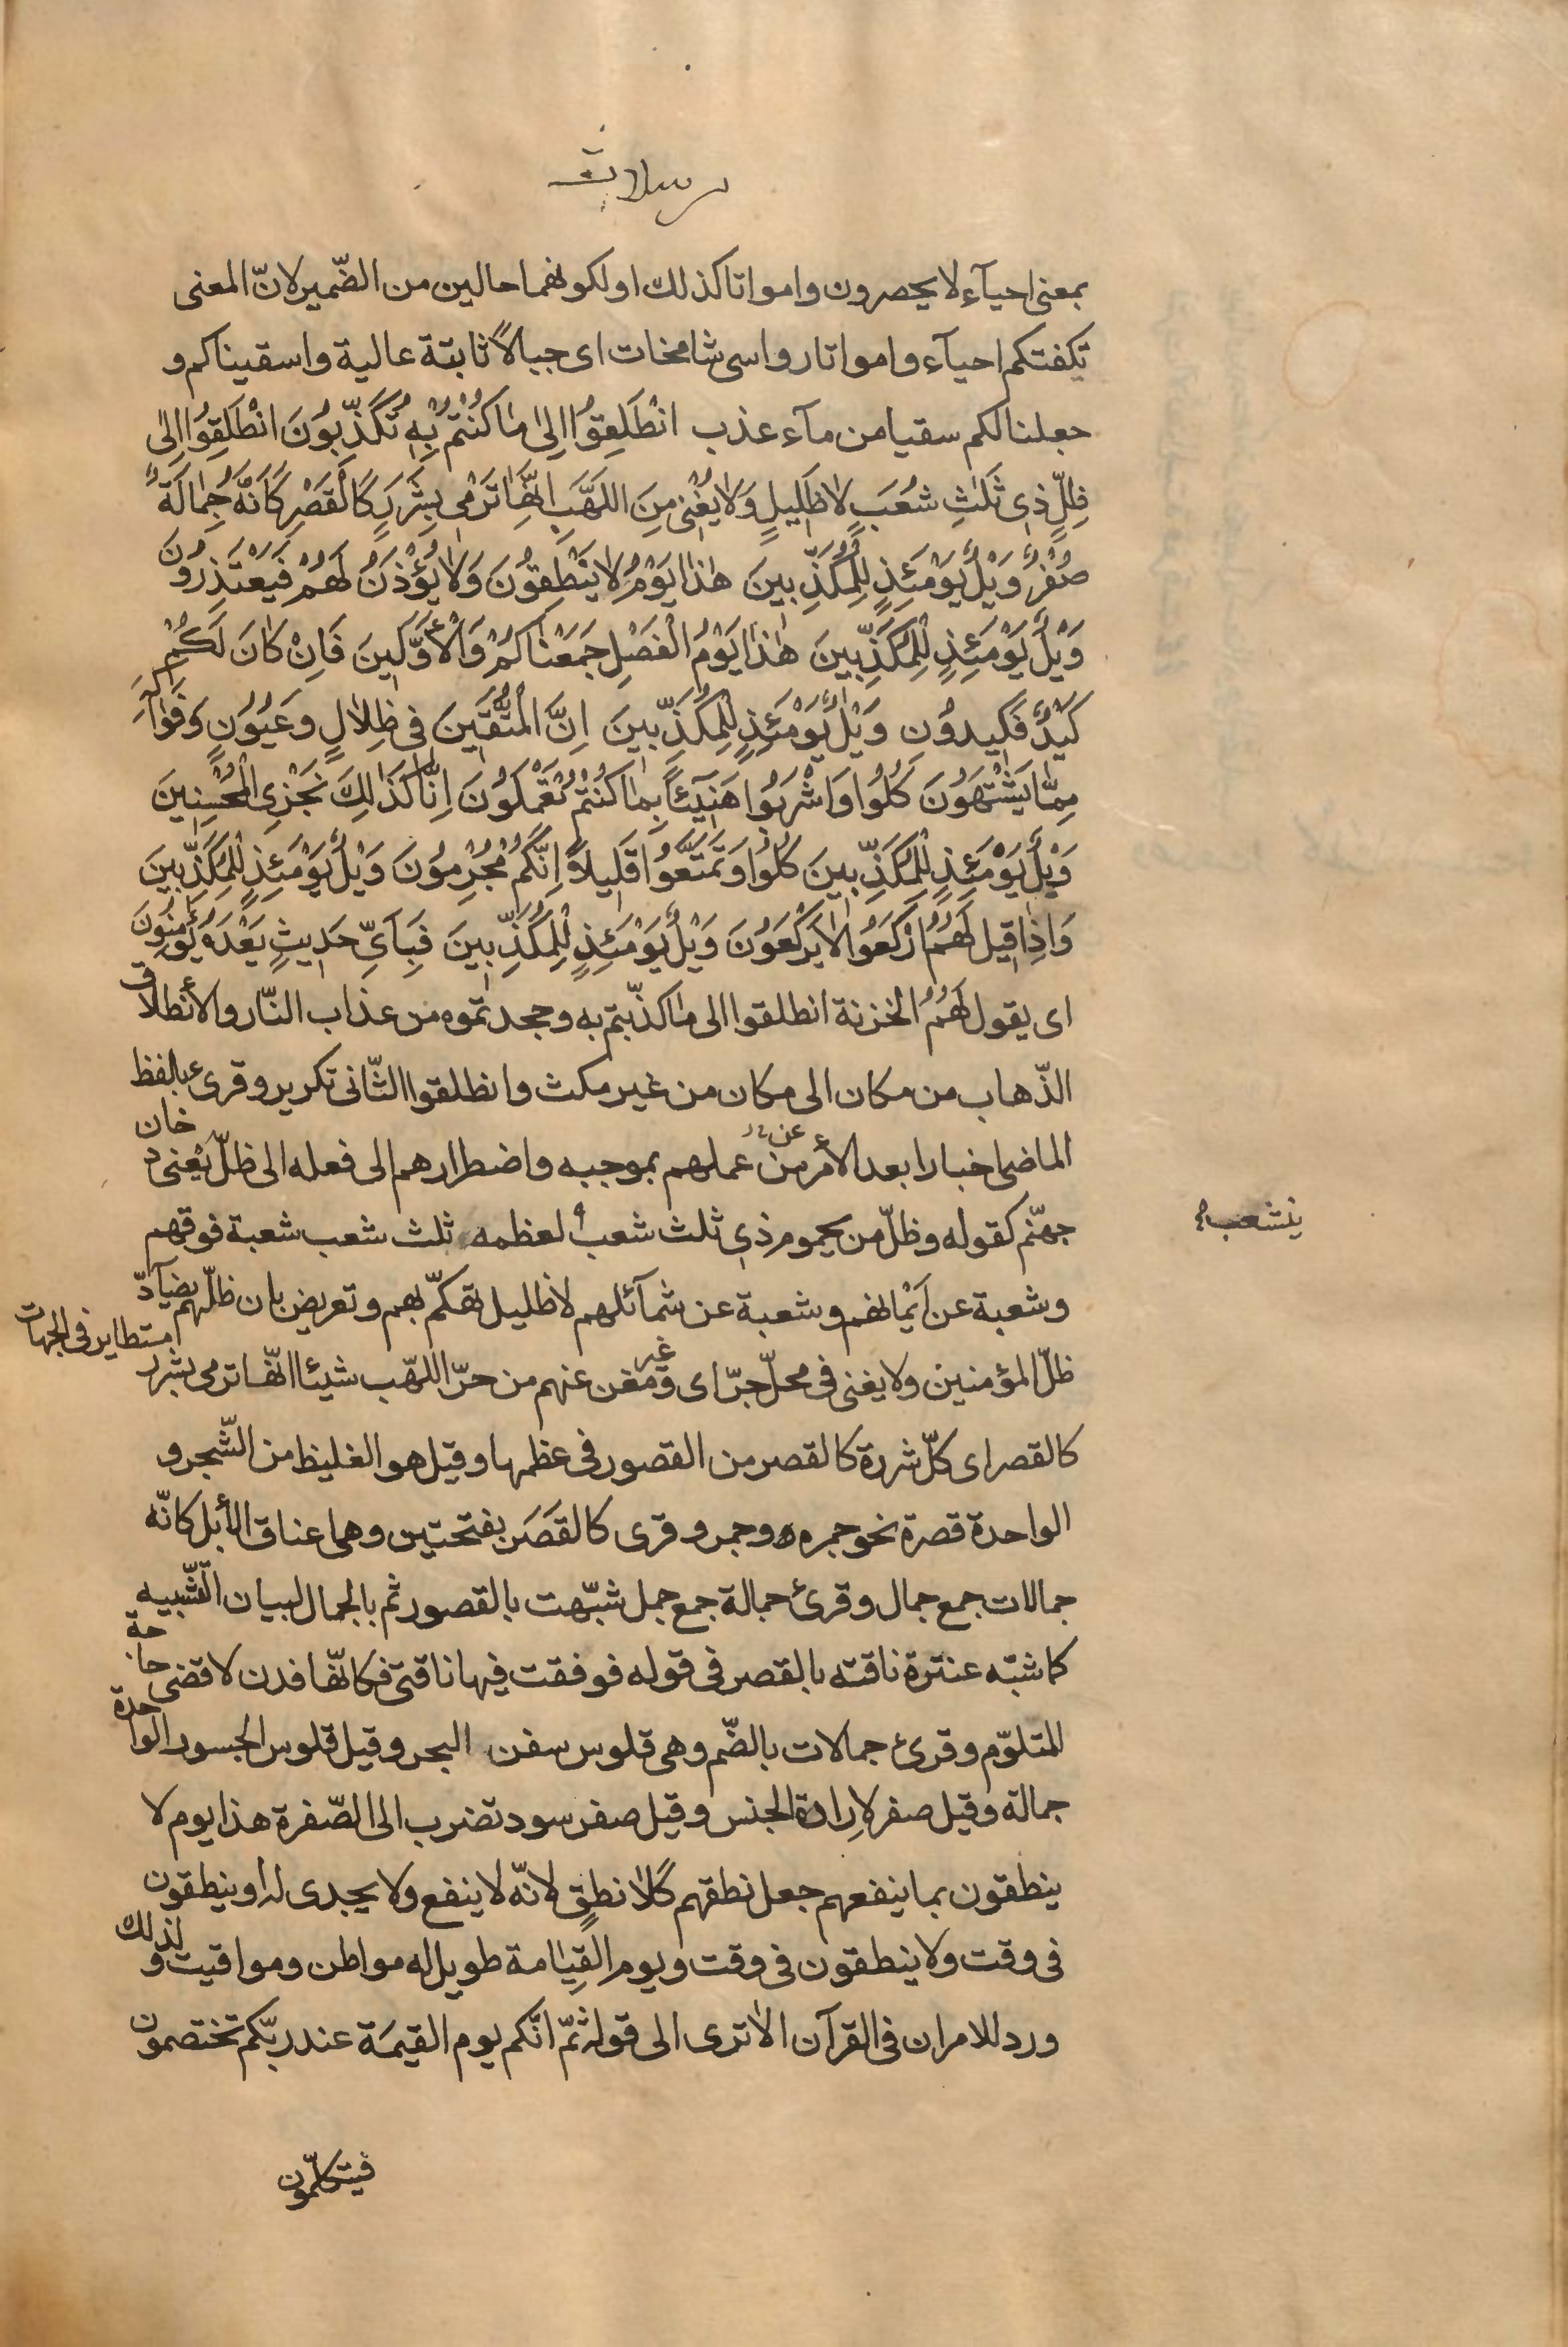 مرسلات
بمعنى احيآء لا يحصرون وامواتا كذلك او لكونهما حالين من الضّمير لانّ المعنى
تكفتكم احيآء وامواتا رواسى شامخات اى جبالاً ثابتة عالية واسقيناكم و
جعلنا لكم سقيا من مآء عذب انْطَلِقُوا اِلىٰ مٰا كُنْتُمْ بِهِ تُكَذِّبُونَ انْطَلِقُوا اِلىٰ
ظِلٍّ ذِى ثَلٰثِ شُعَبٍ لٰا ظَلِيلٍ وَلٰا يُغْنِى مِنَ اللَهَبِ اِنَّهٰا تَرْمِى بِشَرَرٍ كَالْقَصْرِ كَاَنَّهُ جِمٰالَةٌ
صُفْرٌ وَيْلٌ يَوْمَئِذٍ لِلْمُكَذِّبِينَ هٰذٰا يَوْمُ لٰا يَنْطِقُونَ وَلٰا يُؤْذَنُ لَهُمْ فَيَعْتَذِرُونَ
وَيْلٌ يَوْمَئِذٍ لِلْمُكَذِّبِينَ هٰذٰا يَوْمُ الْفَصْلِ جَمَعْنٰاكُمْ وَالْأَوَّلِينَ فَاِنْ كٰانَ لَكُمْ
كَيْدٌ فَكِيدُونِ وَيْلٌ يَوْمَئِذٍ لِلْمُكَذِّبِينَ اِنَّ الْمُتَّقِينَ فِى ظِلٰالٍ وَعُيُونٍ وَفَوٰاكِهَ
مِمّٰا يَشْتَهُونَ كُلُوا وَاشْرَبُوا هَنِيٓئاً بِمٰا كُنْتُمْ تَعْمَلُونَ اِنّٰا كَذٰلِكَ نَجْزِى الْمُحْسِنِينَ
وَيْلٌ يَوْمَئِذٍ لِلْمُكَذِّبِينَ كُلُوا وَتَمَتَّعُوا قَلِيلاً اِنَّكُمْ مُجْرِمُونَ وَيْلٌ يَوْمَئِذٍ لِلْمُكَذِّبِينَ
وَاِذٰا قِيلَ لَهُمُ ارْكَعُوا لٰا يَرْكَعُونَ وَيْلٌ يَوْمَئِذٍ لِلْمُكَذِّبِينَ فَبِاَىِّ حَدِيثٍ بَعْدَهُ يُؤْمِنُونَ
اى يقول لَهُمُ الخزنة انطلقوا الى مٰا كذّبتم به وجحدتموه من عذاب النّار والأنطلاق
الذّهاب من مكان الى مكان من غير مكث وانطلقوا الثّانى تكرير وقرىء بالفظ
الماضى اخبارا بعد الأمر من عن عملهم بموجبه واضطرارهم الى فعله الى ظلّ يَعْنى دخان
جهنّم كقوله وظلّ من يحموم ذى ثلث شعب لعظمه ثلث شعب شعبة فوقهم
ينشعب
وشعبة عن اَيْمانهم وشعبة عن شمآئلهم لا ظليل تهكّم بهم وتعريض بان ظلّهم يضآدّ
ظلّ المؤمنين ولا يغنى فى محلّ جرّ اى وغير مغن عنهم من حرّ اللهّب شيئا انّها ترمى بشرر
مستطاير فى الجهات
كالقصر اى كلّ شررة كالقصر من القصور فى عظمها وقيل هو الغليظ من الشّجر و
الواحدة قصرة نحو جمره وجمر وقرى كالقَصَر بفتحتين وهى اعناق الأبل كانّه
جمالات جمع جمال وقرئ جمالة جمع جمل شبّهت بالقصور ثم بالجمال لبيان التّشبيه
كما شبّه عنترة ناقته بالقصر فى قوله فوفقت فيها ناقتى فكانّها فدن لاقضى حاجة
المتلوّم وقرئ جمالات بالضّم وهى قلوس سفن البحر وقيل قلوس الجسور الواحدة
جمالة وقيل صفر لاِرادة الجنس وقيل صفر سود تضرب الى الصّفرة هذا يوم لا
ينطقون بما ينفعهم جعل نطقهم كلٰا نطقٍ لانّه لا ينفع ولا يجدى له او ينطقون
فى وقت ولا ينطقون فى وقت ويوم القِيٰامة طويل له مواطن ومواقيت ولذلك
ورد للامران فى القرآن الاترى الى قوله ثمّ انّكم يوم القيمَة عند ربّكم تختصمون
فيتكلّمون